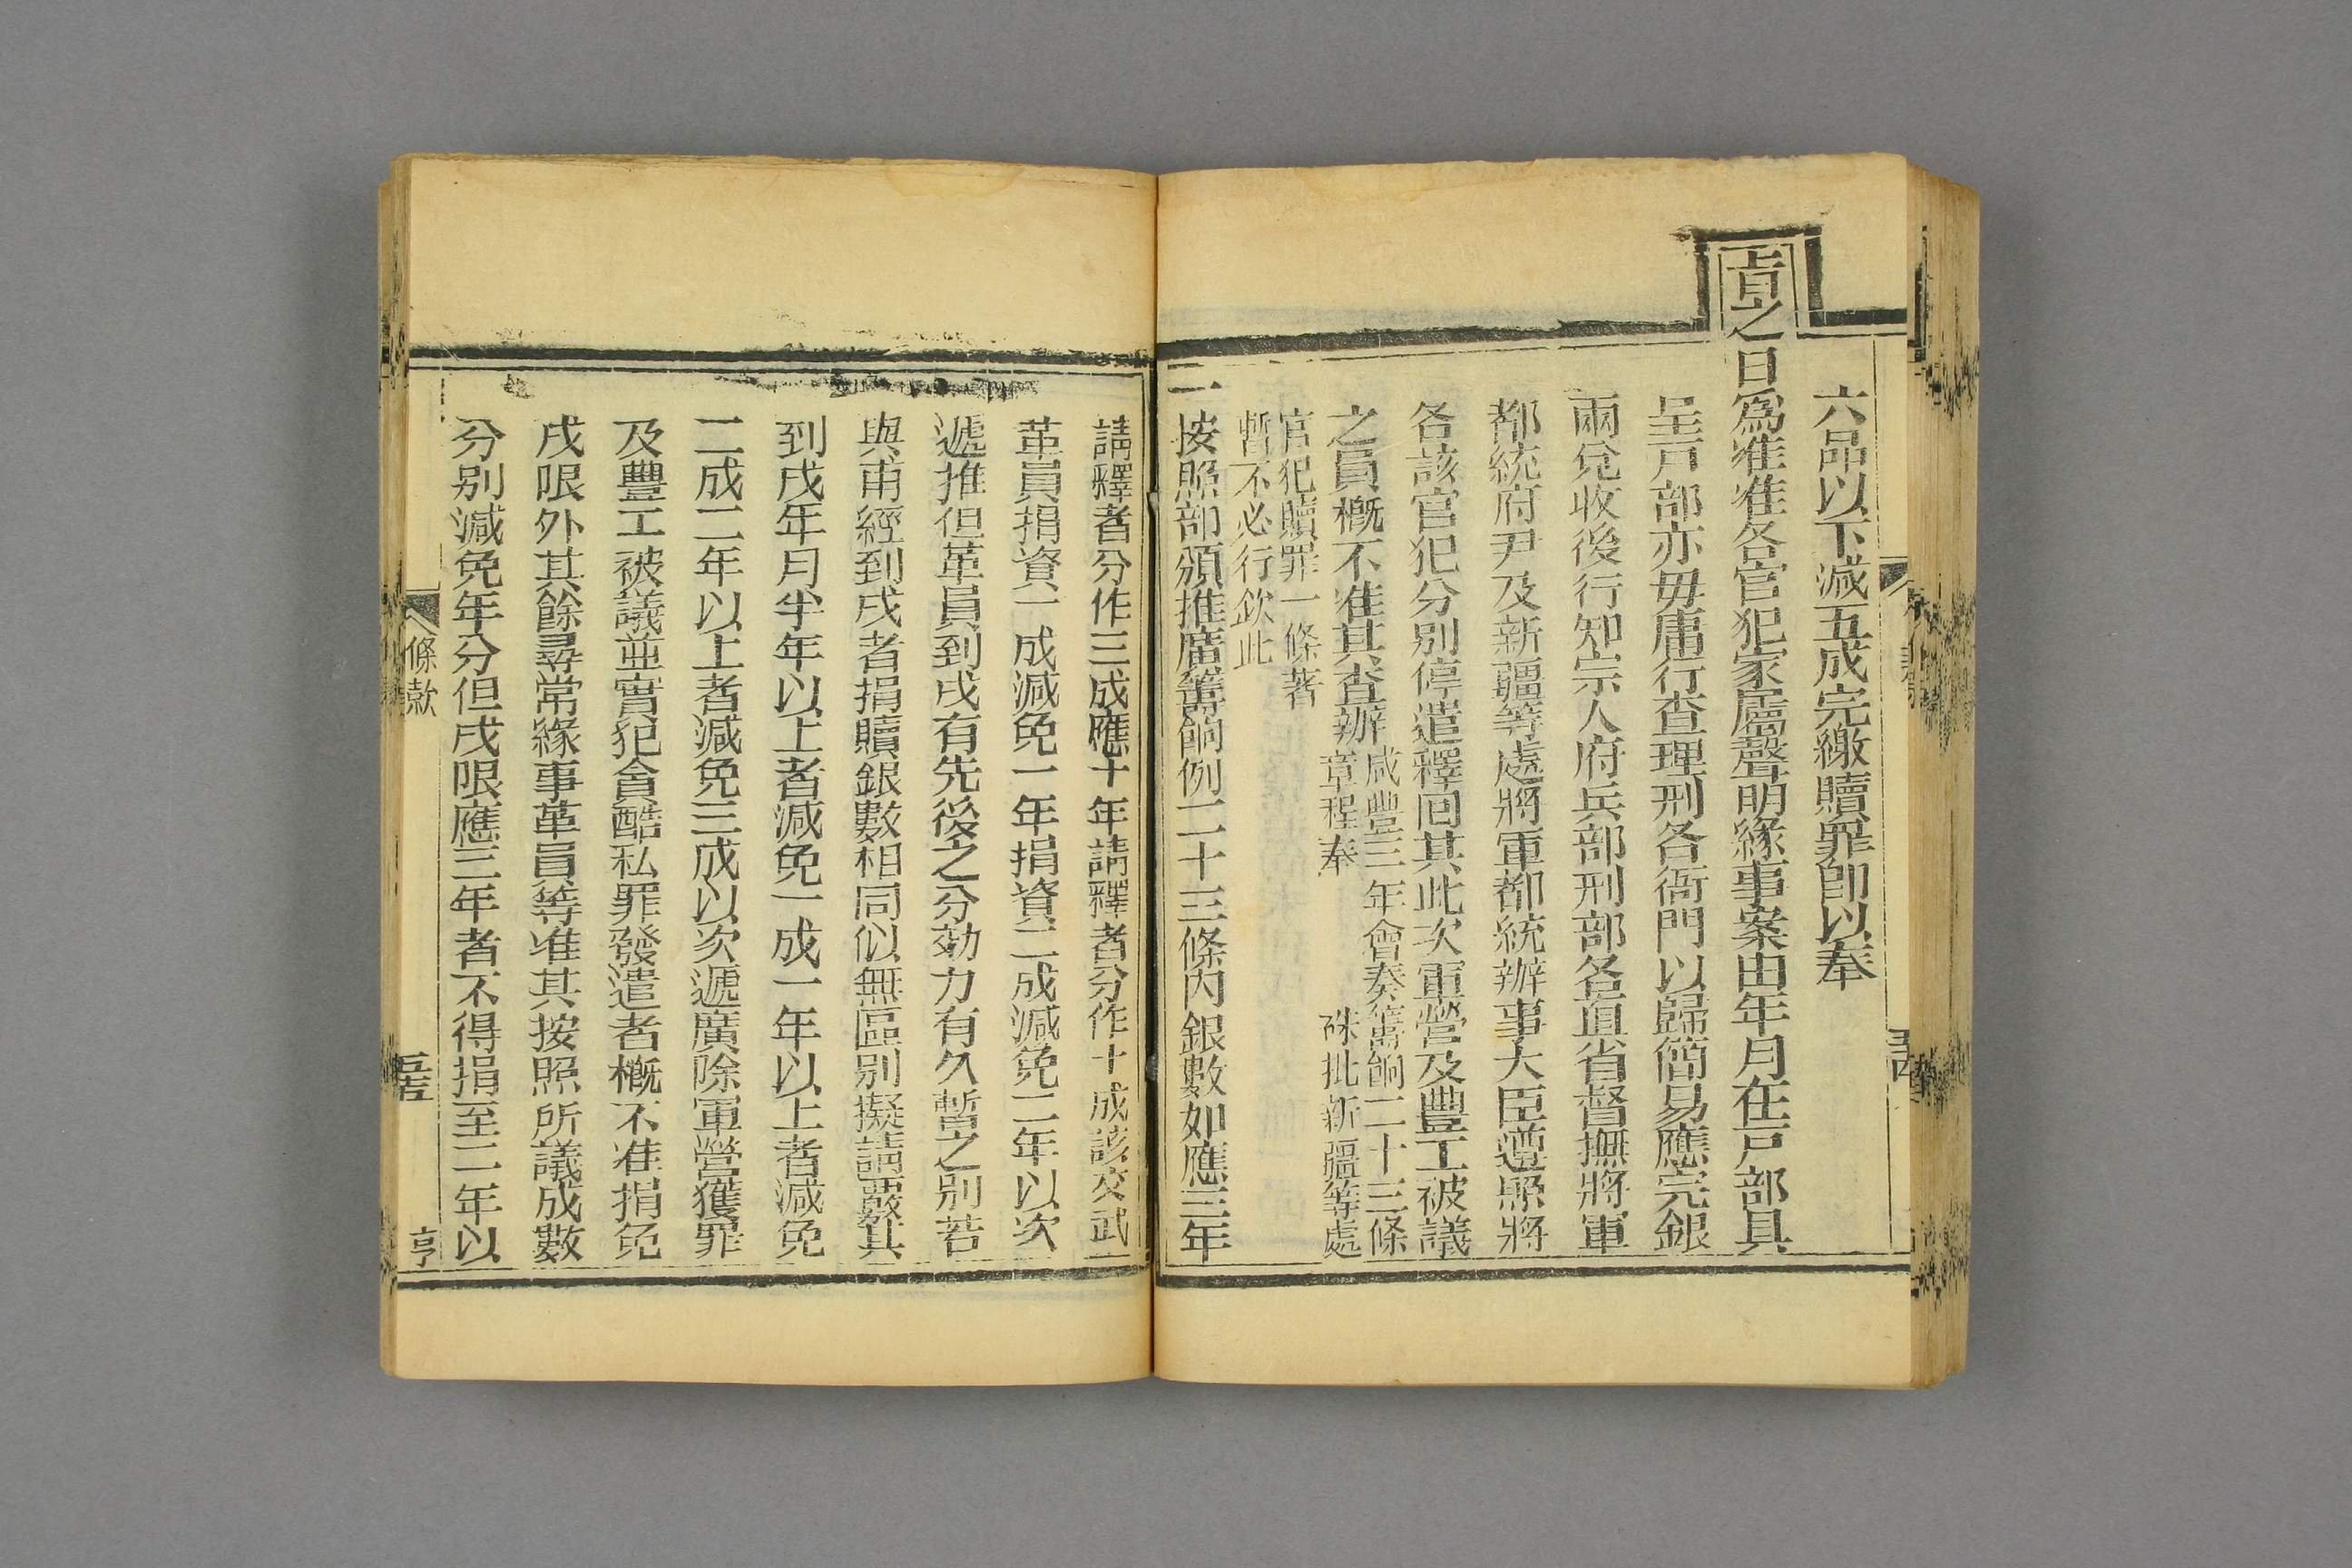 六品以下減五成完繳贖罪卽以奉
旨之日爲准准各官犯家屬聲明緣事案由年月在戸部具
呈戸部亦毋庸行查理刑各衙門以歸簡易應完銀
兩兌收後行知宗人府兵部刑部各直省督撫將軍
都統府尹及新疆等處將軍都統辦事大臣遵照將
各該官犯分別停遣釋回其此次軍營及豐工被議
之員概不准其查辦
咸豐三年會奏籌餉二十三條
章程奉　硃批新疆等處
官犯贖罪一條著
暫不必行欽此
一按照部頒推廣籌餉例二十三條內銀數如應三年
請釋者分作三成應十年請釋者分作十成該文武
革員捐資一成減免一年捐資二成減免二年以次
遞推但革員到戍有先後之分効力有久暫之別若
與甫經到戍者捐贖銀數相同似無區別擬請覈其
到戍年月半年以上者減免一成一年以上者減免
二成二年以上者減免三成以次遞廣除軍營獲罪
及豐工被議並實犯貪酷私罪發遣者概不准捐免
戍限外其餘尋常緣事革員等准其按照所議成數
分別減免年分但戍限應三年者不得捐至二年以
條款
亨